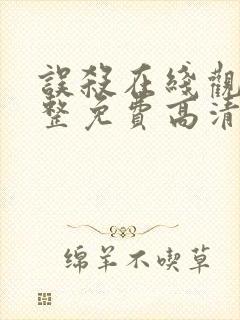 誤殺在綫觀
整免費高清
绵羊不喫草